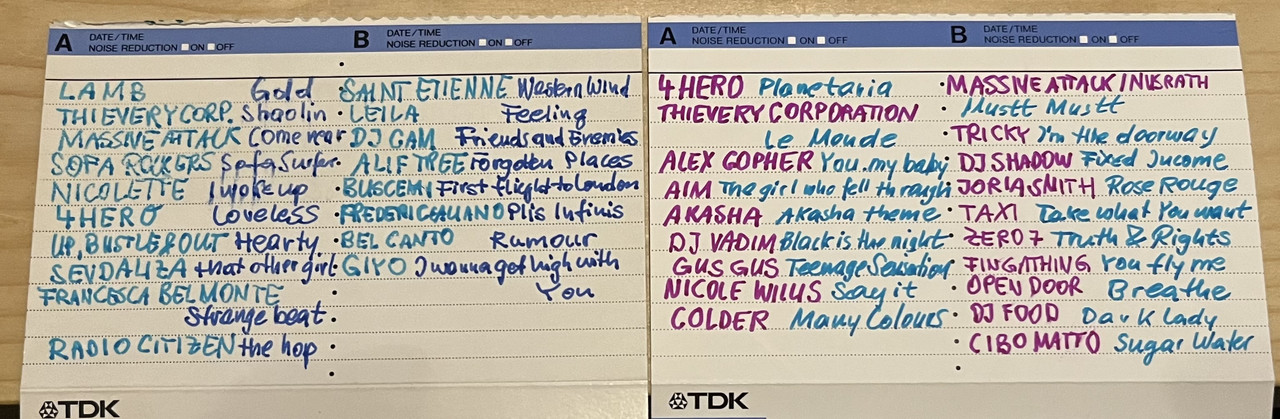 A DATE/TIME
NOISE REDUCTION ON OFF
B DATE/TIME
NOISE REDUCTION ON OFF
LAMB Gold
THIEVERY CORP. Shaolin
MASSIVE ATTACK Come near
SOFA ROCKERS Sofa Surfer
NICOLETTE I woke up
4HERO Loveless
UP, BUSTLE & OUT Hearty
SEVDALIZA that other girl
FRANCESCA BELMONTE
Strange beat
RADIO CITIZEN the hop
SAINT ETIENNE Western Wind
LEILA Feeling
DJ CAM Friends and Enemies
ALIF TREE Forgotten Places
BUSCEMI First flight to London
FREDERIC GALIANO Plis Infinis
BEL CANTO Rumour
GIYO I wanna get high with
You
TDK
A DATE/TIME
NOISE REDUCTION ON OFF
B DATE/TIME
NOISE REDUCTION ON OFF
4HERO Planetaria
THIEVERY CORPORATION
Le Monde
ALEX GOPHER You, my baby
AIM The girl who fell through
AKASHA Akasha theme
DJ VADIM Black is the night
GUS GUS Teenage Sensation
NICOLE WILLIS Say it
COLDER Many Colours
MASSIVE ATTACK / NUSRATH
Mustt Mustt
TRICKY I'm the doorway
DJ SHADOW Fixed Income
JORJA SMITH Rose Rouge
TAXI Take what You want
ZERO 7 Truth & Rights
FINGATHING You fly me
OPEN DOOR Breathe
DJ FOOD Dark lady
CIBO MATTO Sugar Water
TDK